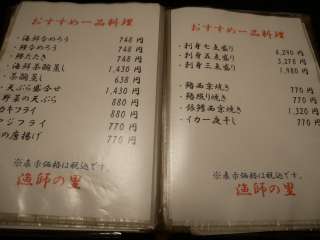 おすすめ一品料理
・海鮮なめろう 748 円
・鯵なめろう 748 円
・鯵たたき 748 円
・海鮮茶碗蒸し 1,430 円
・茶碗蒸し 638 円
・天ぷら盛合せ 1,430 円
野菜の天ぷら 880 円
カキフライ 880 円
アジフライ 770 円
の唐揚げ 770 円
※表示価格は税込です。
漁師の里
おすすめ一品料理
・刺身七点盛り 6,290 円
・刺身五点盛り 3,278 円
・刺身三点盛り 1,980 円
・鯖西京焼き 770 円
・鯖照り焼き 770 円
・銀鱈西京焼き 1,320 円
・イカ一夜干し 770 円
※表示価格は税込です。
漁師の里